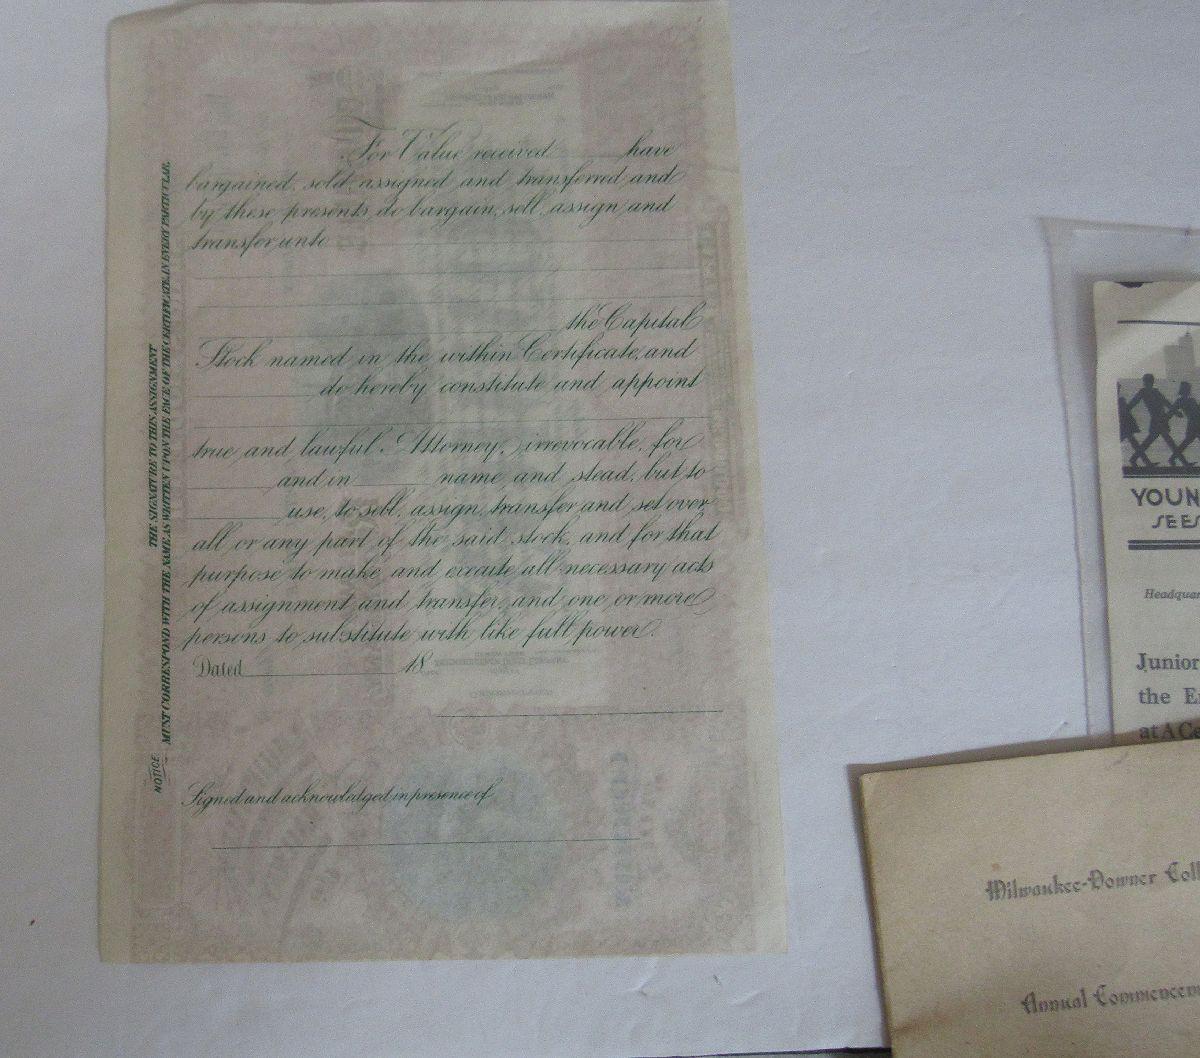 For Value received have
bargained, sold, assigned and transferred and
by these presents do bargain, sell, assign and
transfer unto
the Capital
Stock named in the within Certificate, and
do hereby constitute and appoint
true and lawful Attorney, irrevocable, for
and in name and stead, but to
use, to sell, assign, transfer and set over,
all or any part of the said stock, and for that
purpose to make and execute all necessary acts
of assignment and transfer, and one or more
persons to substitute with like full power.
Dated 18
Signed and acknowledged in presence of
NOTICE
THE SIGNATURE TO THIS ASSIGNMENT
MUST CORRESPOND WITH THE NAME AS WRITTEN UPON THE FACE OF THE CERTIFICATE, IN EVERY PARTICULAR.
YOUN
SEES
Headquar
Junior
the E
at A Ce
Milwaukee-Downer Coll
Annual Commencem